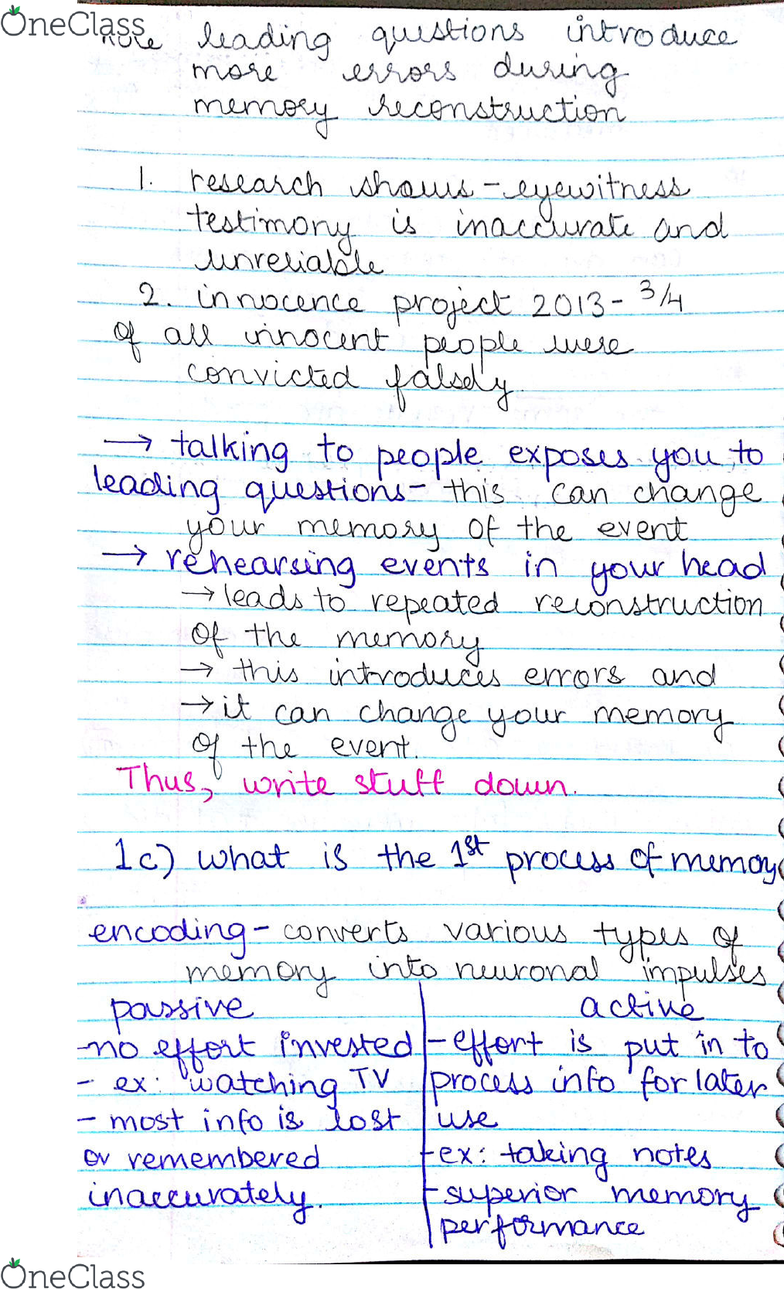 OneClass
note leading questions introduce
more errors during
memory reconstruction
1. research shows - eyewitness
testimony is inaccurate and
unreliable
2. innocence project 2013 - 3/4
of all innocent people were
convicted falsely.
→ talking to people exposes you to
leading questions - this can change
your memory of the event
→ rehearsing events in your head
→ leads to repeated reconstruction
of the memory
→ this introduces errors and
→ it can change your memory
of the event.
Thus, write stuff down.
1c) what is the 1st process of memoy
encoding - converts various types of
memory into neuronal impulses
passive
-no effort invested
- ex: watching TV
- most info is lost
or remembered
inaccurately.
active
- effort is put in to
process info for later
use
-ex: taking notes
-superior memory
performance
OneClass